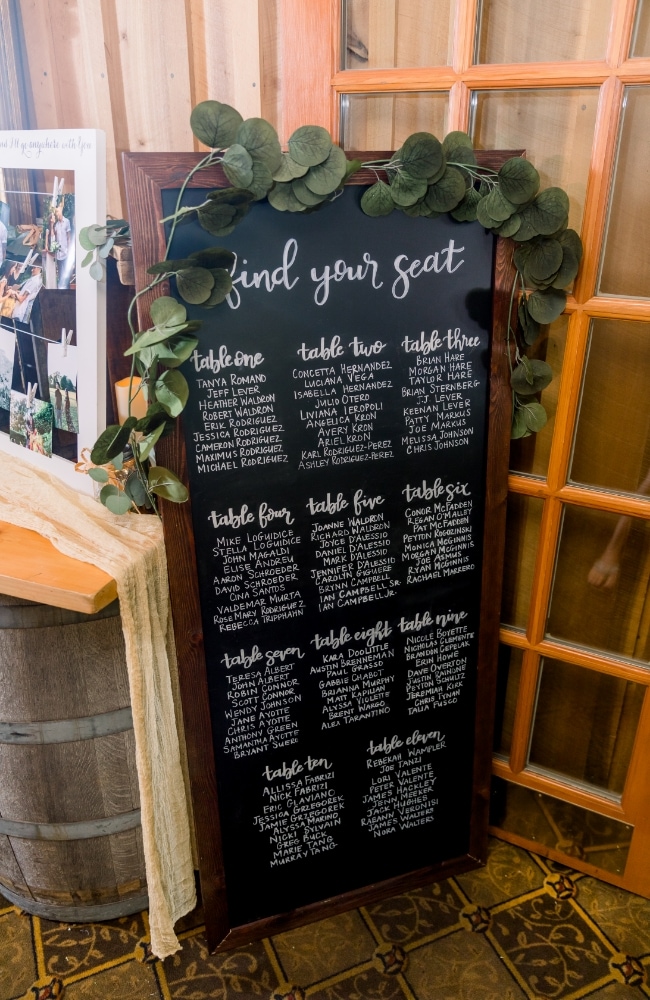 I'll go anywhere with you
find your seat
table one
Tanya Romano
Jeff Lever
Heather Waldron
Robert Waldron
Erik Rodriguez
Jessica Rodriguez
Cameron Rodriguez
Maximus Rodriguez
Michael Rodriguez
table two
Concetta Hernandez
Luciana Vega
Isabella Hernandez
Julio Otero
Liviana Ieropoli
Angelica Kron
Avery Kron
Ariel Kron
Karl Rodriguez-Perez
Ashley Rodriguez-Perez
table three
Brian Hare
Morgan Hare
Taylor Hare
Brian Sternberg
J.J. Lever
Keenan Lever
Patty Markus
Joe Markus
Melissa Johnson
Chris Johnson
table four
Mike LoGuidice
Stella LoGuidice
John Magaldi
Elise Andreu
Aaron Schroeder
David Schroeder
Cina Santos
Valdemar Murta
Rose Mary Rodriguez
Rebecca Tripphahn
table five
Joanne Waldron
Richard Waldron
Joyce D'Alessio
Daniel D'Alessio
Mark D'Alessio
Jennifer D'Alessio
Carolyn Giguere
Brynn Campbell
Ian Campbell Sr.
Ian Campbell Jr.
table six
Conor McFadden
Regan O'Malley
Pat McFadden
Peyton Rogozinski
Monica McGinnis
Morgan McGinnis
Joe Asmus
Ryan McGinnis
Rachael Marrero
table seven
Teresa Albert
John Albert
Robin Connor
Scott Connor
Wendy Johnson
Jane Ayotte
Chris Ayotte
Anthony Greene
Samantha Ayotte
Bryant Suere
table eight
Kara Doolittle
Austin Brenneman
Paul Grasso
Gabbie Chabot
Brianna Murphy
Matt Kapilian
Alyssa Violette
Brent Wargo
Alex Tarantino
table nine
Nicole Boyette
Nicholas Clemente
Brandon Cepelak
Erin Howe
Dave Overton
Justin
Peyton Schultz
Jeremiah Kirk
Chris Tynan
Talia Fusco
table ten
Allissa Fabrizi
Nick Fabrizi
Eric Glaviano
Jessica Grzegorek
Jamie Grzegorek
Alyssa Marino
Nicki Sylvain
Greg Buck
Marie Tang
Murray Tang
table eleven
Rebekah Wampler
Joe Tanzi
Lori Valente
Peter Valente
James Hackley
Jenn Meeker
Jack Hughes
Rabann Veronisi
James Walters
Nora Walters